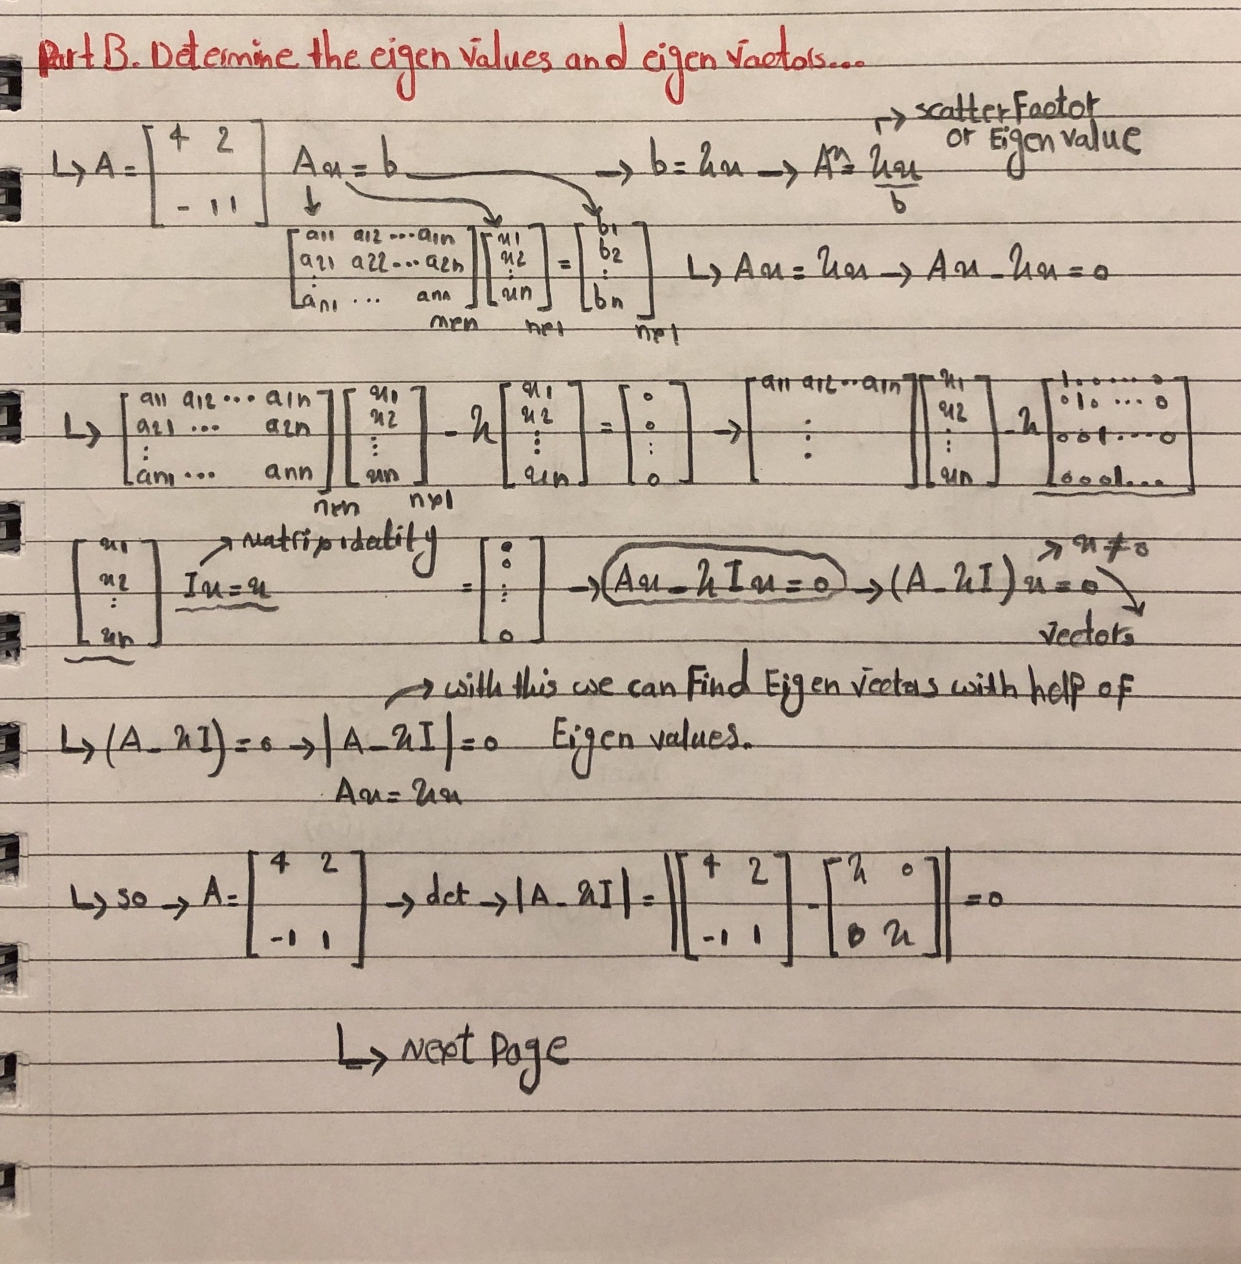 Part B. Determine the eigen values and eigen vectors...
↳ A = [4 2; -1 1] Ax = b → b = λx → Ax = λx → scatter Factor or Eigen value
b
[a11 a12 ... a1n; a21 a22 ... a2n; ⋮ an1 ... ann] [x1 x2 ⋮ xn] = [b1 b2 ⋮ bn] ↳ Ax = λx → Ax - λx = 0
nxn nx1 nx1
↳ [a11 a12 ... a1n; a21 ... a2n; ⋮ an1 ... ann] [x1 x2 ⋮ xn] - λ [x1 x2 ⋮ xn] = [0 0 ⋮ 0] → [a11 a12 .. a1n ⋮] [x1 x2 ⋮ xn] - λ [1 0 .... 0; 0 1 0 ... 0; 0 0 1 .... 0; 0 0 0 1 ...]
nxn nx1
[x1 x2 ⋮ xn] Ix = x → Matrix idetity = [0 0 ⋮ 0] → Ax - λIx = 0 → (A - λI) x = 0 → x ≠ 0
vectors
→ with this we can Find Eigen vectors with help of
↳ (A - λI) = 0 → |A - λI| = 0 Eigen values.
Ax = λx
↳ so → A = [4 2; -1 1] → det → |A - λI| = |[4 2; -1 1] - [λ 0; 0 λ]| = 0
↳ Next Page